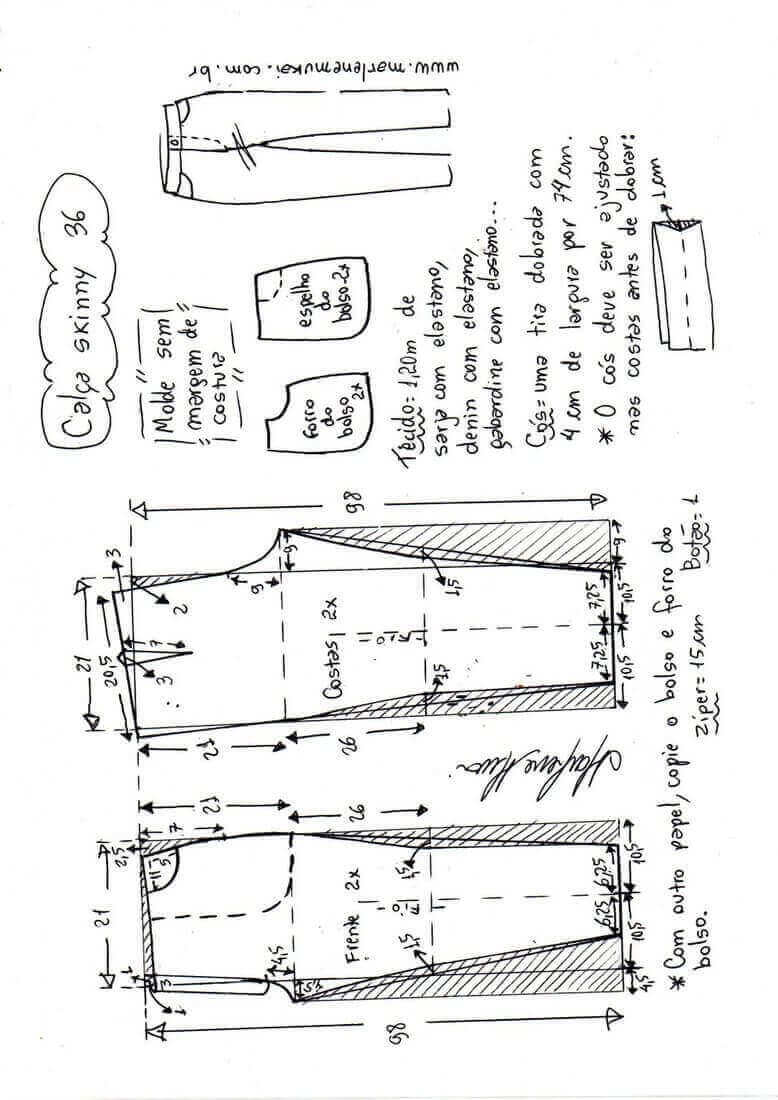 www.marlenemukai.com.br
Calça skinny 36
Molde sem
margem de
costura
espelho
do
bolso-2x
forro
do
bolso
2x
Tecido= 1,20m de
sarja com elastano,
denin com elastano,
gabardine com elastano...
Cós= uma tira dobrada com
4 cm de largura por 74cm.
* O cós deve ser ajustado
nas costas antes de dobrar:
1cm
98
3
21
20,5
7
2
3
9
9
Costas 2x
fio
1,5
1,5
21
26
7,25
7,25
10,5
10,5
9
21
26
7
2,5
21
11
5
Frente 2x
fio
1,5
1,5
4,5
4,5
1
3
1
6,25
6,25
10,5
10,5
4,5
98
* Com outro papel, copie o bolso e forro do
bolso.
zíper= 15cm
Botão= 1